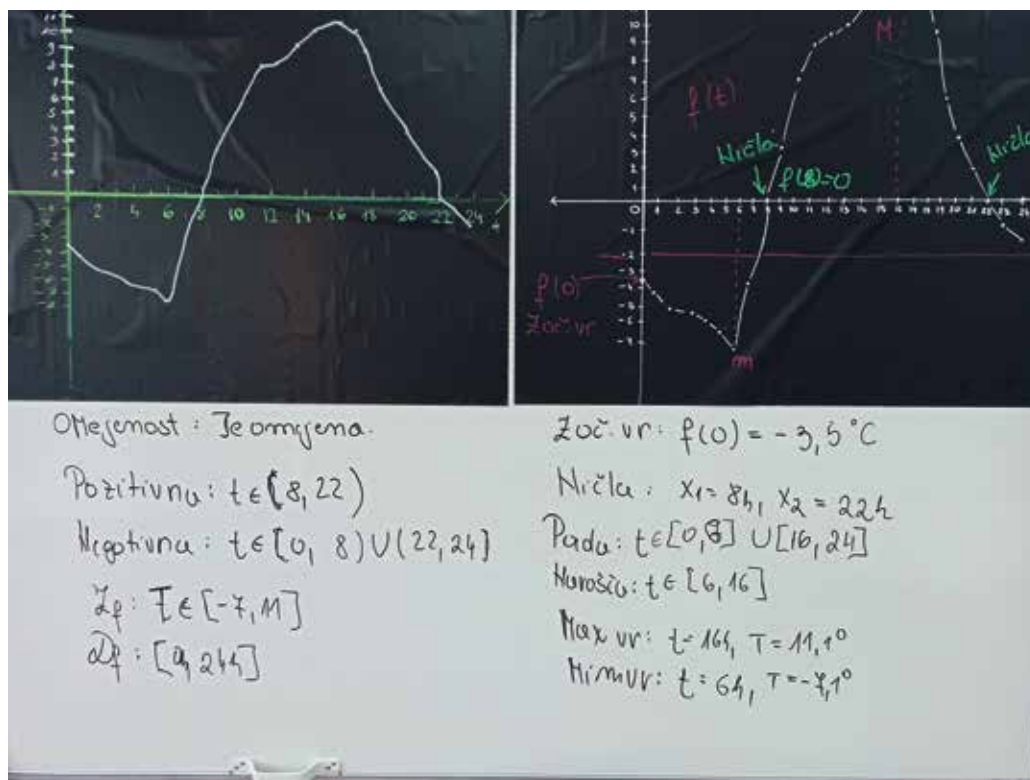 2 4 6 8 10 12 14 16 18 20 22 24
f(t)
M
Ničla
Ničla
f(8)=0
f(0)
Zač. vr
m
Omejenost: Je omejena.
Pozitivna: t ∈ (8, 22)
Negativna: t ∈ [0, 8) ∪ (22, 24]
Zf: T ∈ [-7, 11]
Df: [0, 24h]
Zač. vr: f(0) = -3,5°C
Ničla: x₁ = 8h, x₂ = 22h
Pada: t ∈ [0, 8] ∪ [16, 24]
Narašča: t ∈ [6, 16]
Max vr: t = 16h, T = 11,1°
Min vr: t = 6h, T = -7,1°